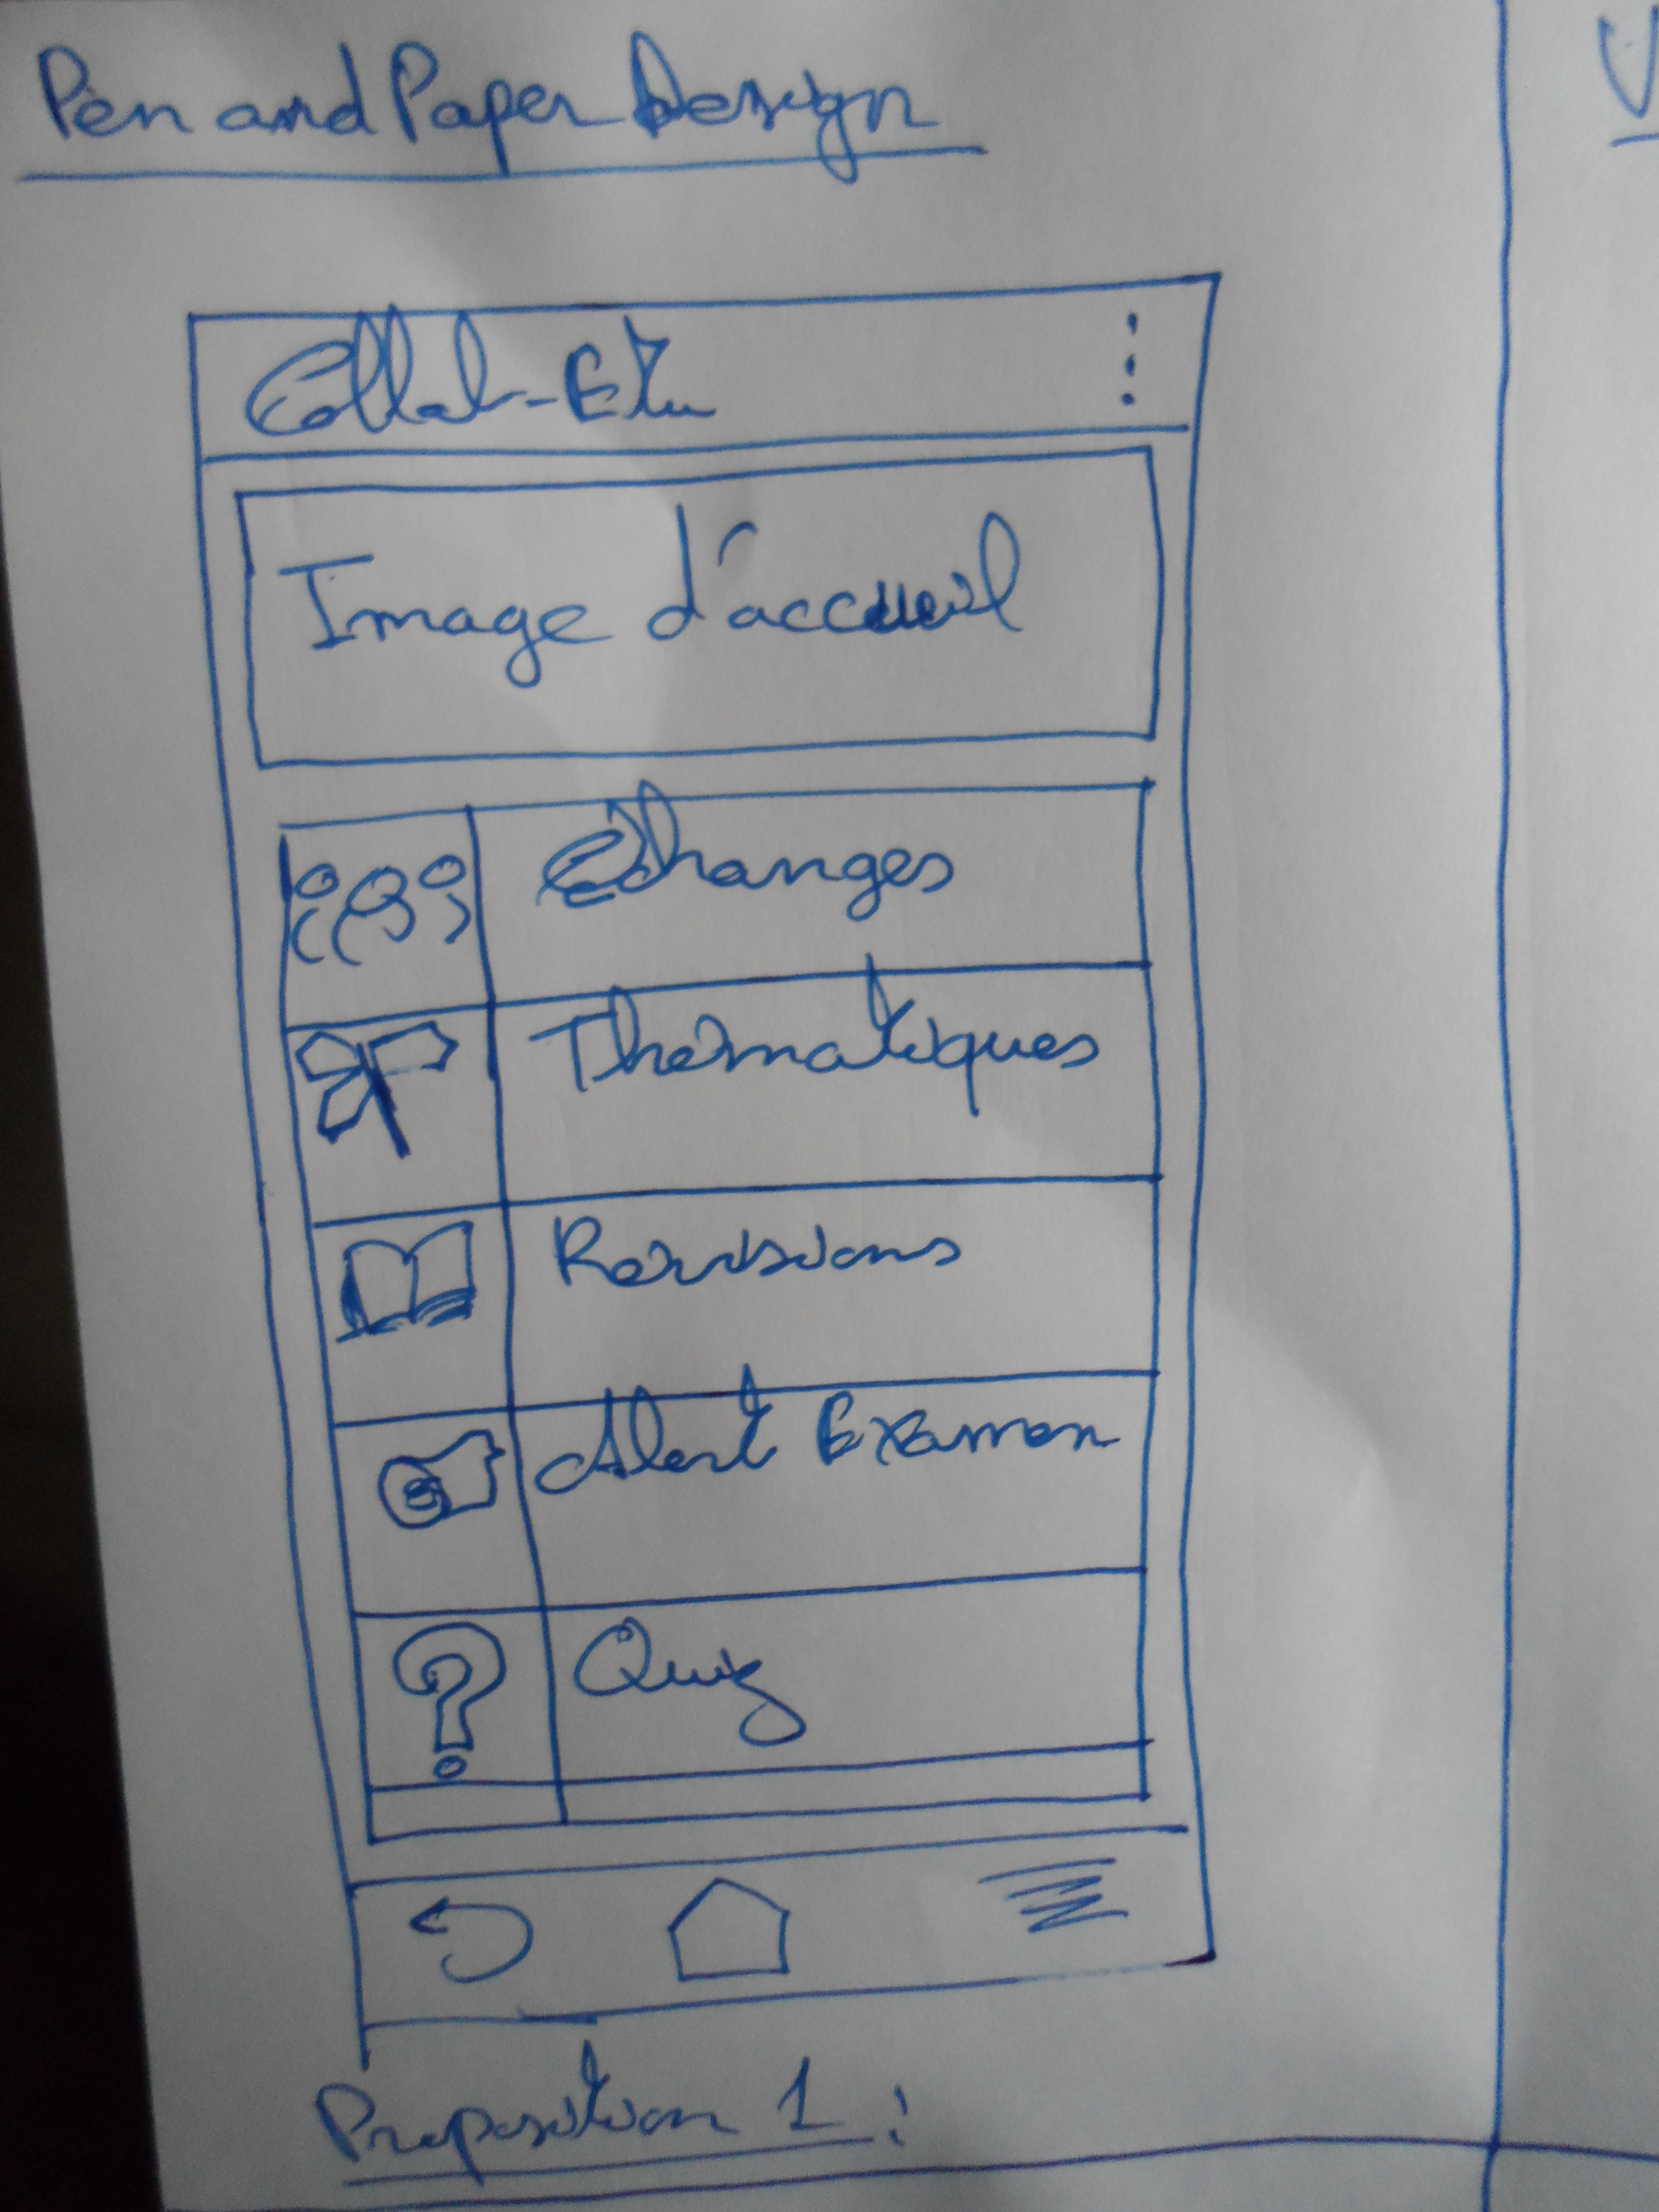 Pen and Paper Design
Collab-Etu
Image d'accueil
Echanges
Thématiques
Révisions
Alert Examen
Quiz
Proposition 1 :